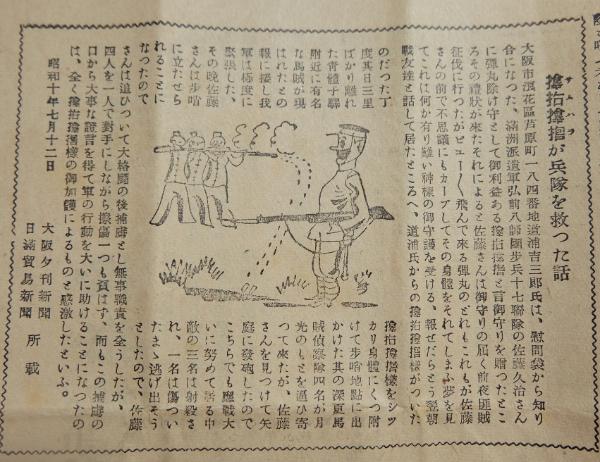 サムハラ
搶抬搶揩が兵隊を救つた話
大阪市浪花區芦原町一八四番地道浦吉三郎氏は、慰問袋から知り
合になつた、滿洲派遣軍弘前八師團步兵十七聯隊の佐藤久治さん
に彈丸除け守として御利益ある搶抬搶揩と言御守りを贈つたとこ
ろその禮狀が來たそれによると佐藤さんは御守りの屆く前夜匪賊
征伐に行つたがピユー〱飛んで來る彈丸のどれもこれもが佐藤
さんの前で不思議にもカーブしてその身體をそれてしまふ夢を見
てこれは何か有り難い神樣の御守護を受ける、報せだらとう翌朝
戰友達と話して居たところへ、道浦氏からの搶抬搶揩樣がついた
のだつた丁
度其日三里
ばかり離れ
た靑體子驛
附近に有名
な馬賊が現
はれたとの
報に接し我
軍は極度に
緊張した、
その晩佐藤
さんは步哨
に立たせら
れることに
なつたので
搶抬搶揩樣をシツ
カリ身體にくつ附
けて步哨地點に出
かけた其の深更馬
賊偵察隊四名が月
光のもとを通ひ寄
つて來たが、佐藤
さんを見つけて矢
庭に發砲したので
こちらでも應戰大
いに努めて居る中
敵の三名は射殺さ
れ、一名は傷つい
たまゝ逃げ出そう
としたので、佐藤
さんは追ひついて大格鬪の後捕虜とし無事職責を全うしたが、
四人を一人で對手にしながら擦傷一つも負はず、而もこの捕虜の
口から大事な證言を得て軍の行動を大いに助けることになつたの
は、全く搶抬搶揩樣の御加護によるものと感激したといふ。
昭和十年七月十二日
大阪夕刊新聞
日滿貿易新聞 所載